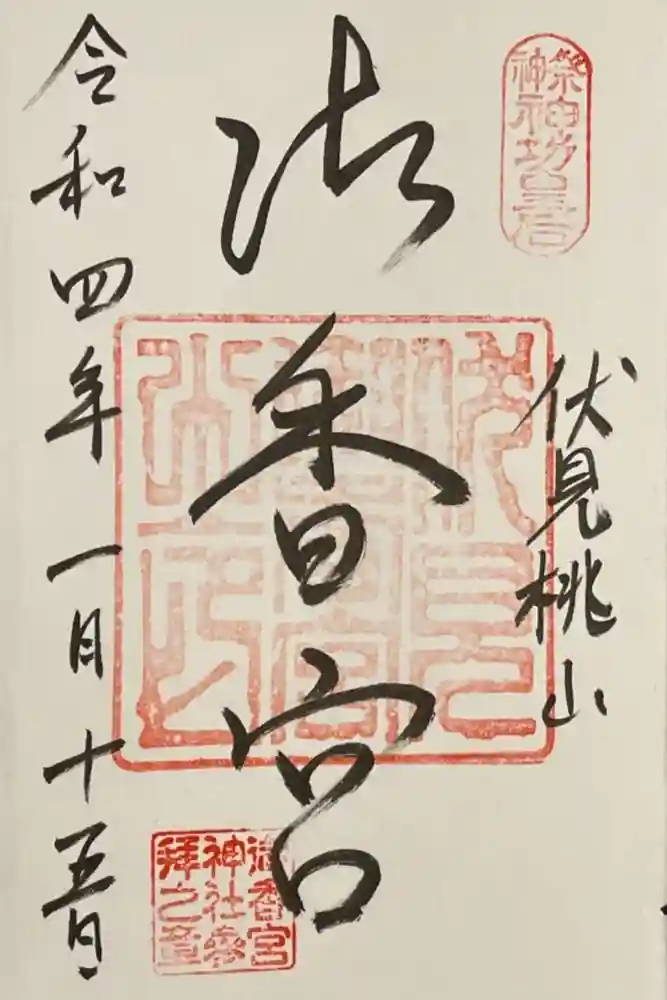 祭神
神功皇后
伏見桃山
御香宮
御香宮
神社参
拝之章
令和四年一月十五日